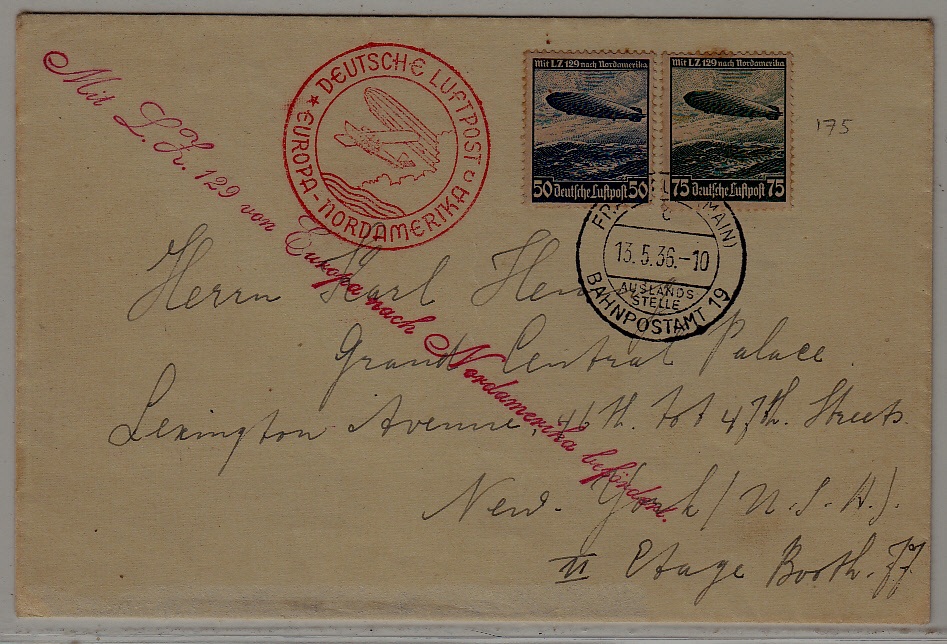 Mit L.Z. 129 von Europa nach Nordamerika befördert.
★ DEUTSCHE LUFTPOST
EUROPA-NORDAMERIKA
Mit LZ 129 nach Nordamerika
50 Deutsche Luftpost 50
Mit LZ 129 nach Nordamerika
75 Deutsche Luftpost 75
175
(MAIN)
13.5.36.-10
AUSLANDS
STELLE
BAHNPOSTAMT 19
Herrn Karl
Grand Central Palace
Lexington Avenue, 46th. tot 47th. Streets.
New-York (N.S.A).
II Etage Booth. 77.